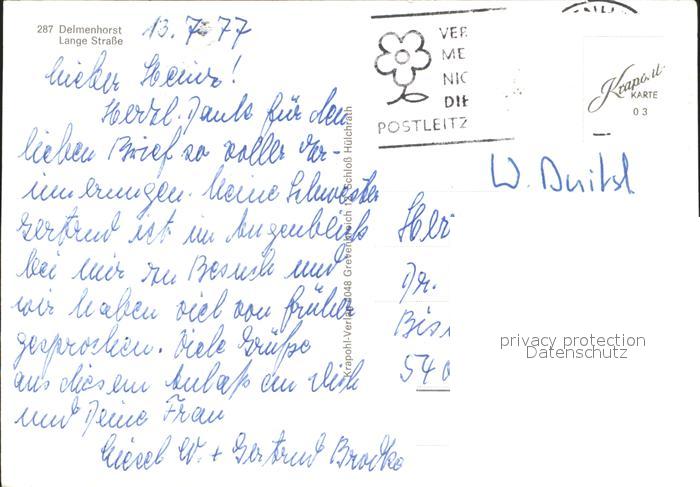 287 Delmenhorst
Lange Straße
13.7.77
Lieber Heinz!
Herzl. Dank für den
lieben Brief so voller Er-
innerungen. Meine Schwester
Gertrud ist im Augenblick
bei mir zu Besuch und
wir haben viel von früher
gesprochen. Viele Grüße
aus diesem Anlaß an Dich
und Deine Frau
Liesel W. + Gertrud
Krapohl-Verlag 4048 Grevenbroich 12 Schloß Hülchrath
VER
ME
NIC
DIE
POSTLEITZ
KARTE
03
W.
Her
Dr.
Bis
540
privacy protection
Datenschutz